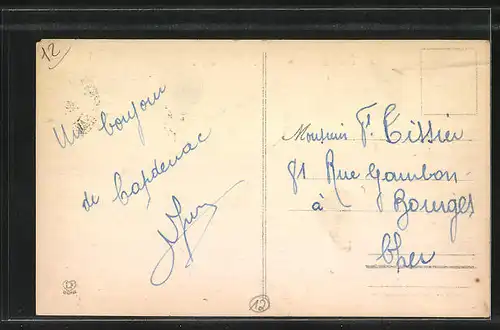 12
Un bonjour
de Capdenac
Monsieur F. Tissier
81 Rue Gambon
à Bourges
Cher
12